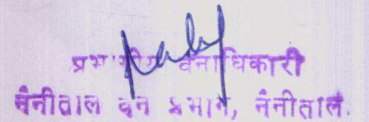 प्रभागीय वनाधिकारी
नैनीताल वन प्रभाग, नैनीताल.